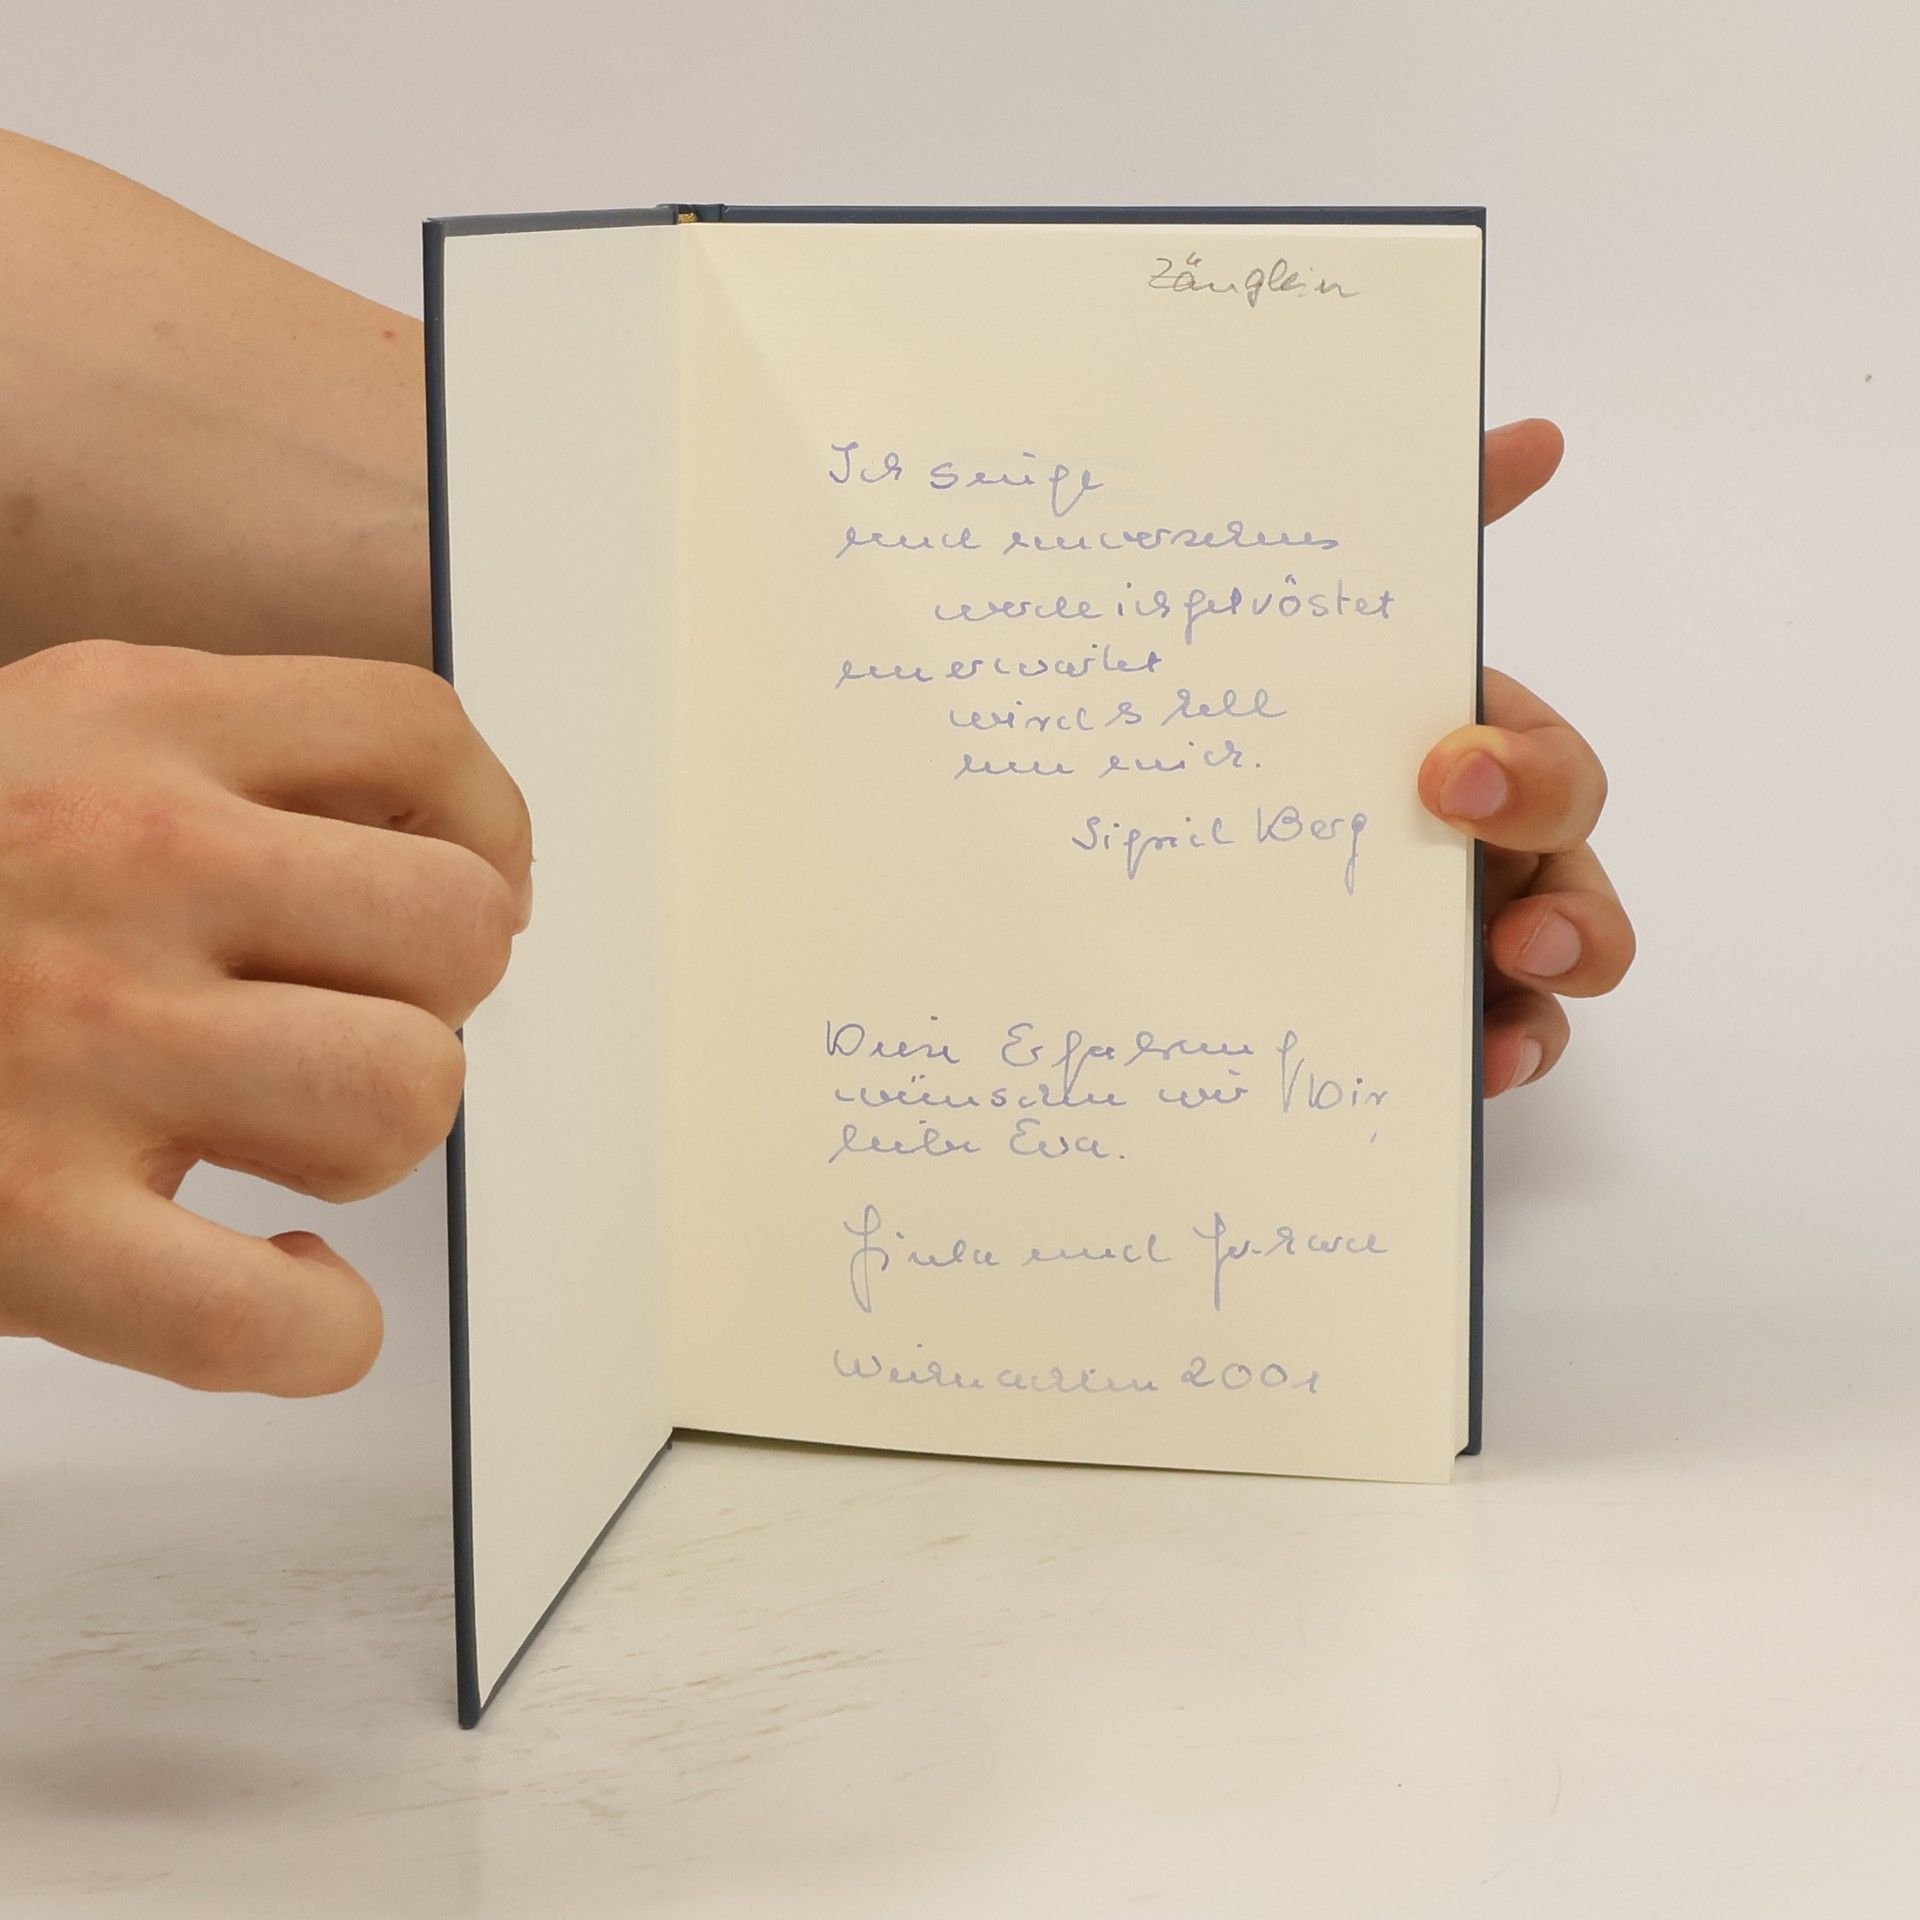 Zänglein
Ich singe
und unversehns
werde ich getröstet
unerwartet
wird's hell
um mich.
Sigrid Berg
Diese Erfahrung
wünschen wir Dir,
liebe Eva.
und
Weihnachten 2001